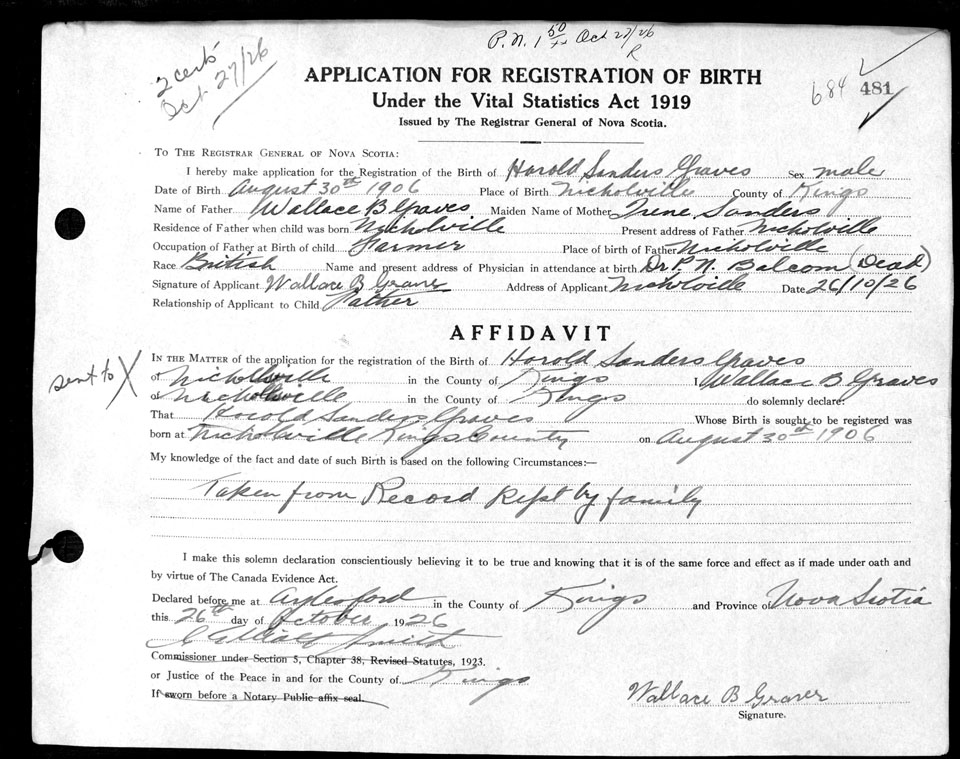 P. N. 1 50 Oct 27/26
R
2 certs
Oct 27/26
APPLICATION FOR REGISTRATION OF BIRTH
684 481
Under the Vital Statistics Act 1919
Issued by The Registrar General of Nova Scotia.
TO THE REGISTRAR GENERAL OF NOVA SCOTIA:
I hereby make application for the Registration of the Birth of Harold Sanders Graves Sex male
Date of Birth August 30th 1906 Place of Birth Nicholville County of Kings
Name of Father Wallace B Graves Maiden Name of Mother Irene Sanders
Residence of Father when child was born Nicholville Present address of Father Nicholville
Occupation of Father at Birth of child Farmer Place of birth of Father Nicholville
Race British Name and present address of Physician in attendance at birth Dr P. N. Balcom (Dead)
Signature of Applicant Wallace B Graves Address of Applicant Nicholville Date 26/10/26
Relationship of Applicant to Child Father
AFFIDAVIT
IN THE MATTER of the application for the registration of the Birth of Harold Sanders Graves
sent to X
of Nichollsville in the County of Kings I Wallace B Graves
of Nichollsville in the County of Kings do solemnly declare:
That Harold Sanders Graves Whose Birth is sought to be registered was
born at Nicholville Kings County on August 30th 1906
My knowledge of the fact and date of such Birth is based on the following Circumstances:—
Taken from Record Kept by family
I make this solemn declaration conscientiously believing it to be true and knowing that it is of the same force and effect as if made under oath and
by virtue of The Canada Evidence Act.
Declared before me at Aylesford in the County of Kings and Province of Nova Scotia
this 26th day of October 1926
Smith
Commissioner under Section 5, Chapter 38, Revised Statutes, 1923.
or Justice of the Peace in and for the County of Kings
If sworn before a Notary Public affix seal.
Wallace B Graves
Signature.